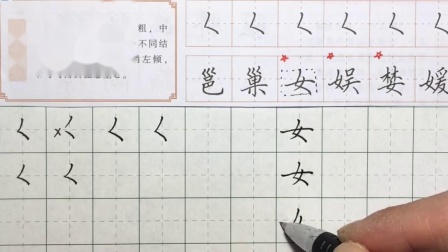 粗，中
不同结
左倾，
く く く く く く
邕 巢 女 娱 婪 媛
く xく く く 女
く く 女